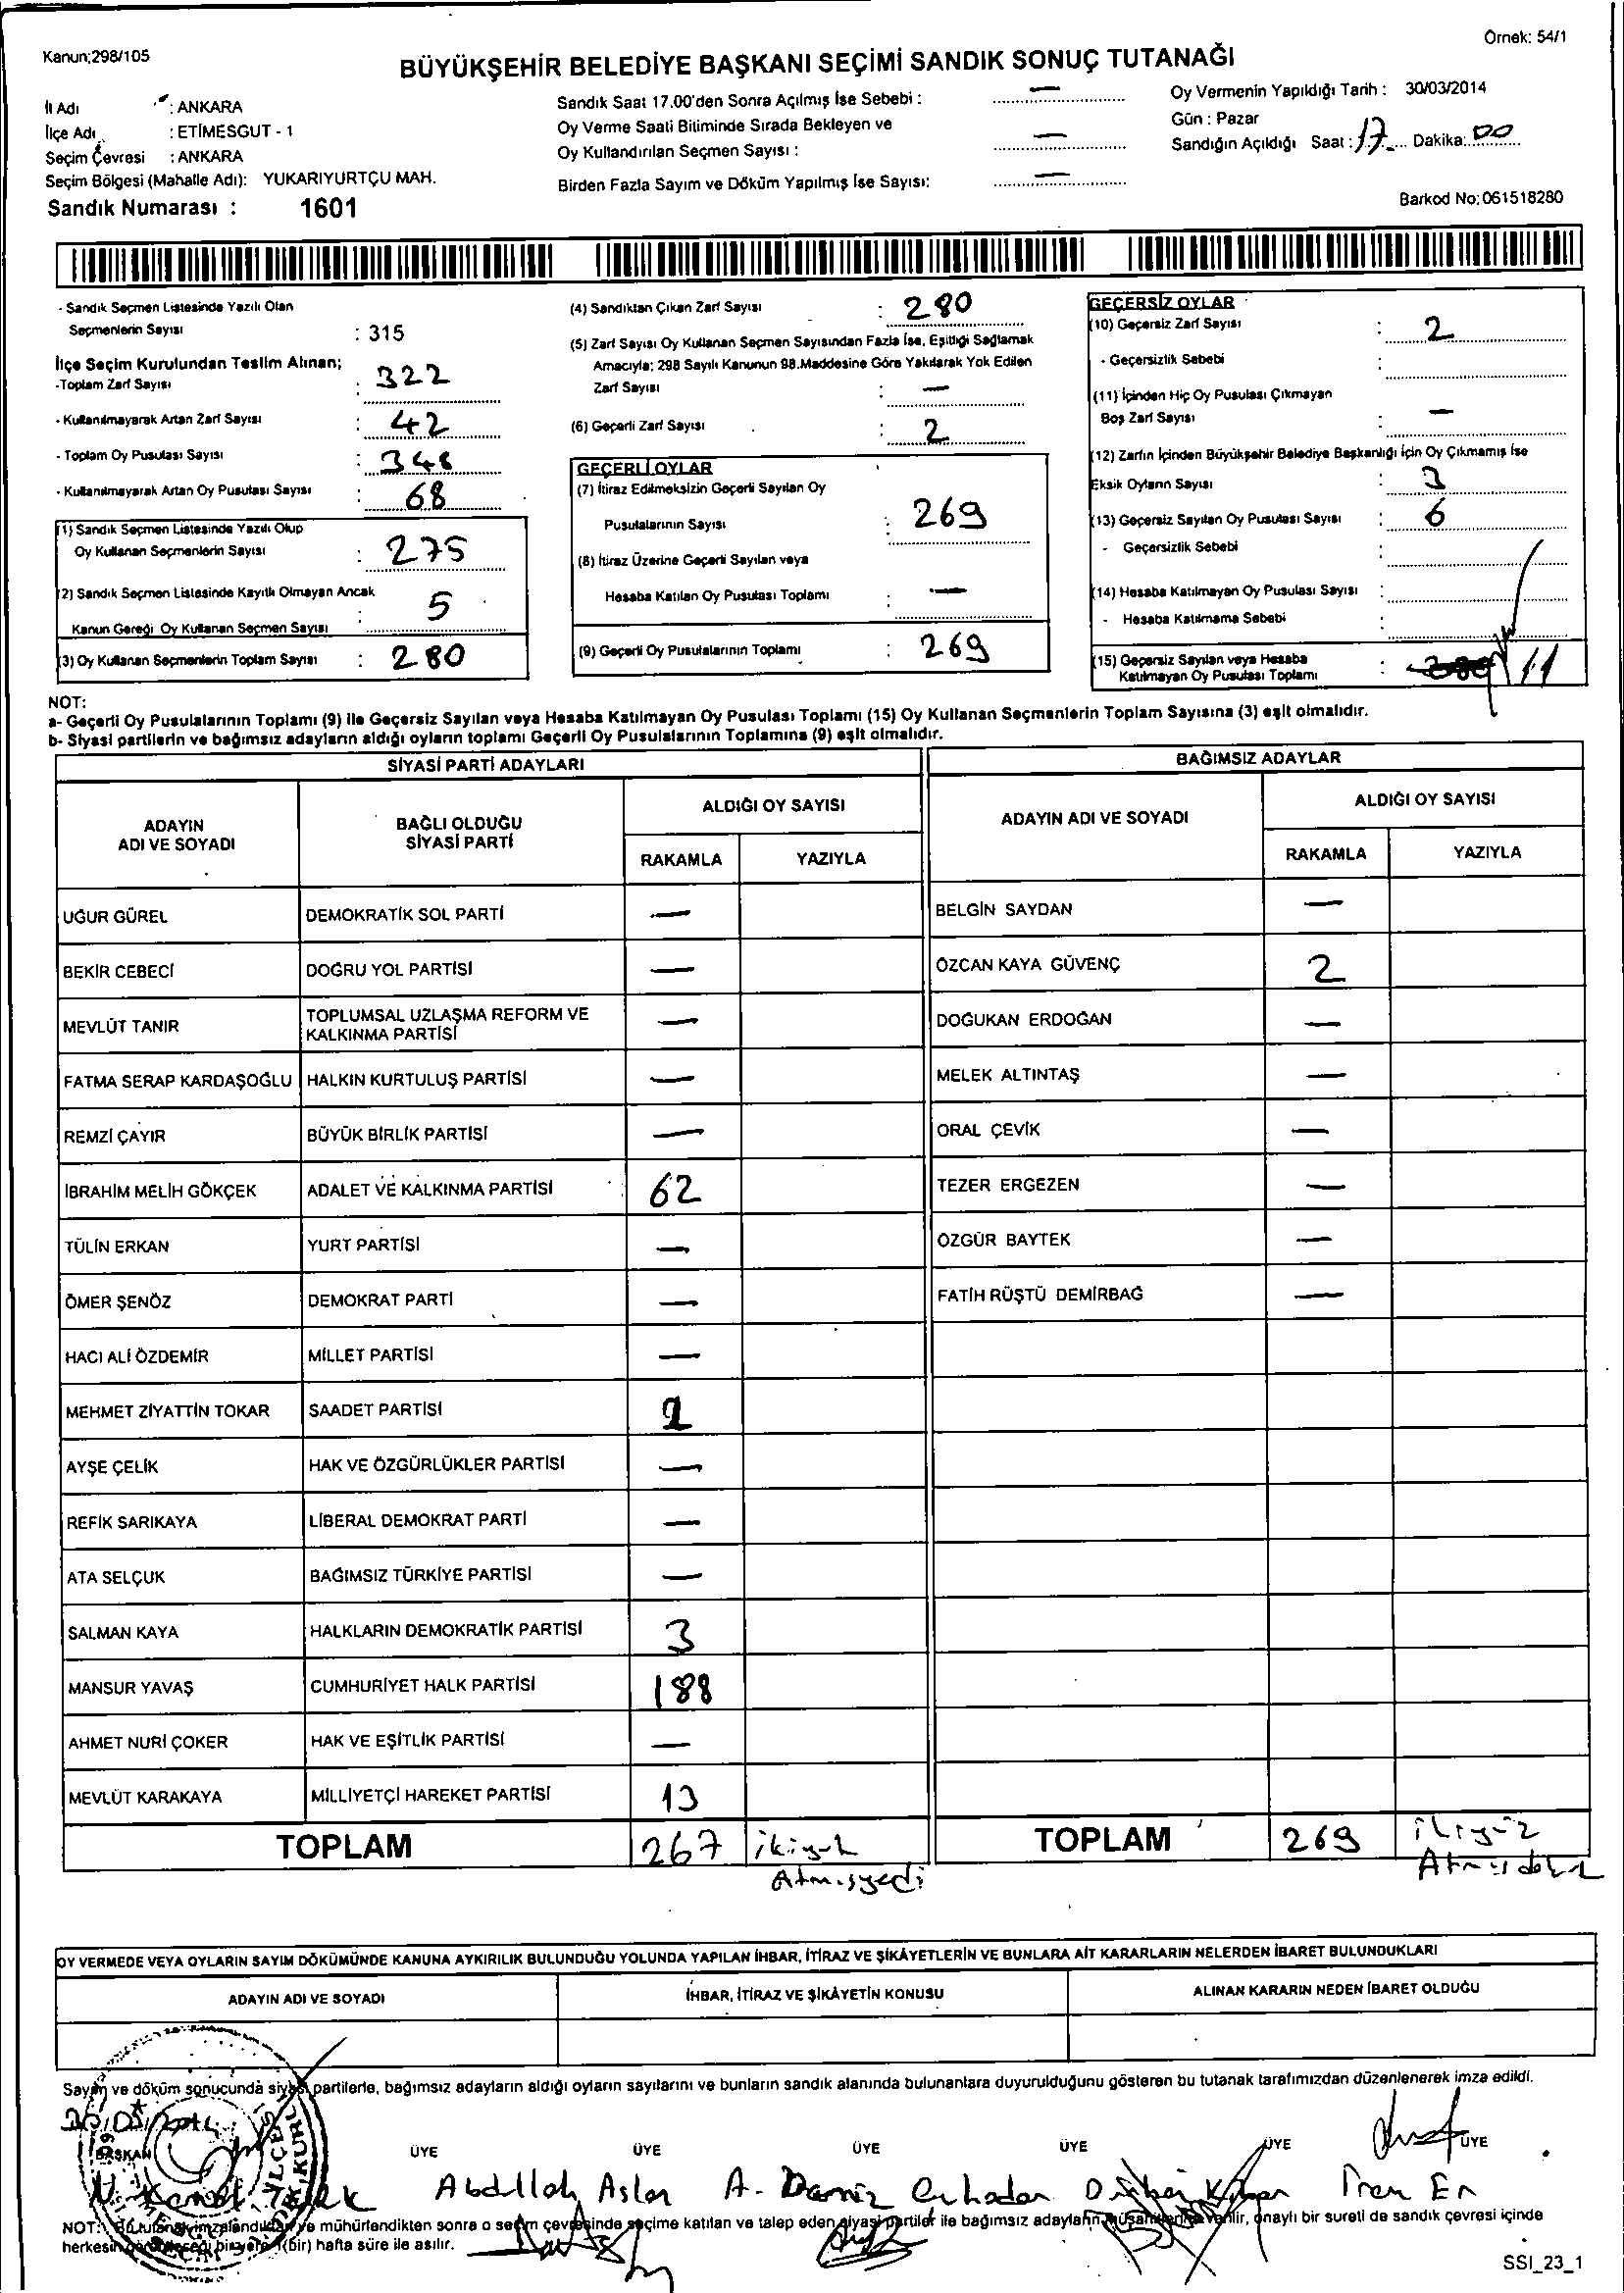 Kanun;298/105
Örnek: 54/1
BÜYÜKŞEHİR BELEDİYE BAŞKANI SEÇİMİ SANDIK SONUÇ TUTANAĞI
İl Adı : ANKARA
İlçe Adı : ETİMESGUT - 1
Seçim Çevresi : ANKARA
Seçim Bölgesi (Mahalle Adı): YUKARIYURTÇU MAH.
Sandık Numarası : 1601
Sandık Saat 17.00'den Sonra Açılmış İse Sebebi : —
Oy Verme Saati Bitiminde Sırada Bekleyen ve
Oy Kullandırılan Seçmen Sayısı : —
Birden Fazla Sayım ve Döküm Yapılmış İse Sayısı: —
Oy Vermenin Yapıldığı Tarih : 30/03/2014
Gün : Pazar
Sandığın Açıldığı Saat : 17 Dakika: 00
Barkod No: 061518280
- Sandık Seçmen Listesinde Yazılı Olan
Seçmenlerin Sayısı : 315
İlçe Seçim Kurulundan Teslim Alınan;
-Toplam Zarf Sayısı : 322
- Kullanılmayarak Artan Zarf Sayısı : 42
- Toplam Oy Pusulası Sayısı : 348
- Kullanılmayarak Artan Oy Pusulası Sayısı : 68
(1) Sandık Seçmen Listesinde Yazılı Olup
Oy Kullanan Seçmenlerin Sayısı : 275
(2) Sandık Seçmen Listesinde Kayıtlı Olmayan Ancak
Kanun Gereği Oy Kullanan Seçmen Sayısı : 5
(3) Oy Kullanan Seçmenlerin Toplam Sayısı : 280
(4) Sandıktan Çıkan Zarf Sayısı : 280
(5) Zarf Sayısı Oy Kullanan Seçmen Sayısından Fazla İse, Eşitliği Sağlamak
Amacıyla; 298 Sayılı Kanunun 98.Maddesine Göre Yakılarak Yok Edilen
Zarf Sayısı : —
(6) Geçerli Zarf Sayısı : 2
GEÇERLİ OYLAR
(7) İtiraz Edilmeksizin Geçerli Sayılan Oy
Pusulalarının Sayısı : 269
(8) İtiraz Üzerine Geçerli Sayılan veya
Hesaba Katılan Oy Pusulası Toplamı : —
(9) Geçerli Oy Pusulalarının Toplamı : 269
GEÇERSİZ OYLAR
(10) Geçersiz Zarf Sayısı : 2
- Geçersizlik Sebebi :
(11) İçinden Hiç Oy Pusulası Çıkmayan
Boş Zarf Sayısı : —
(12) Zarfın İçinden Büyükşehir Belediye Başkanlığı İçin Oy Çıkmamış İse
Eksik Oyların Sayısı : 3
(13) Geçersiz Sayılan Oy Pusulası Sayısı : 6
- Geçersizlik Sebebi :
(14) Hesaba Katılmayan Oy Pusulası Sayısı :
- Hesaba Katılmama Sebebi :
(15) Geçersiz Sayılan veya Hesaba
Katılmayan Oy Pusulası Toplamı : 11
NOT:
a- Geçerli Oy Pusulalarının Toplamı (9) ile Geçersiz Sayılan veya Hesaba Katılmayan Oy Pusulası Toplamı (15) Oy Kullanan Seçmenlerin Toplam Sayısına (3) eşit olmalıdır.
b- Siyasi partilerin ve bağımsız adayların aldığı oyların toplamı Geçerli Oy Pusulalarının Toplamına (9) eşit olmalıdır.
SİYASİ PARTİ ADAYLARI
ADAYIN ADI VE SOYADI
BAĞLI OLDUĞU SİYASİ PARTİ
ALDIĞI OY SAYISI
RAKAMLA YAZIYLA
UĞUR GÜREL DEMOKRATİK SOL PARTİ —
BEKİR CEBECİ DOĞRU YOL PARTİSİ —
MEVLÜT TANIR TOPLUMSAL UZLAŞMA REFORM VE KALKINMA PARTİSİ —
FATMA SERAP KARDAŞOĞLU HALKIN KURTULUŞ PARTİSİ —
REMZİ ÇAYIR BÜYÜK BİRLİK PARTİSİ —
İBRAHİM MELİH GÖKÇEK ADALET VE KALKINMA PARTİSİ 62
TÜLİN ERKAN YURT PARTİSİ —
ÖMER ŞENÖZ DEMOKRAT PARTİ —
HACI ALİ ÖZDEMİR MİLLET PARTİSİ —
MEHMET ZİYATTİN TOKAR SAADET PARTİSİ 1
AYŞE ÇELİK HAK VE ÖZGÜRLÜKLER PARTİSİ —
REFİK SARIKAYA LİBERAL DEMOKRAT PARTİ —
ATA SELÇUK BAĞIMSIZ TÜRKİYE PARTİSİ —
SALMAN KAYA HALKLARIN DEMOKRATİK PARTİSİ 3
MANSUR YAVAŞ CUMHURİYET HALK PARTİSİ 188
AHMET NURİ ÇOKER HAK VE EŞİTLİK PARTİSİ —
MEVLÜT KARAKAYA MİLLİYETÇİ HAREKET PARTİSİ 13
TOPLAM 267 ikiyüz
Atmışyedi
BAĞIMSIZ ADAYLAR
ADAYIN ADI VE SOYADI
ALDIĞI OY SAYISI
RAKAMLA YAZIYLA
BELGİN SAYDAN —
ÖZCAN KAYA GÜVENÇ 2
DOĞUKAN ERDOĞAN —
MELEK ALTINTAŞ —
ORAL ÇEVİK —
TEZER ERGEZEN —
ÖZGÜR BAYTEK —
FATİH RÜŞTÜ DEMİRBAĞ —
TOPLAM 269 ikiyüz
Atmışdokuz
OY VERMEDE VEYA OYLARIN SAYIM DÖKÜMÜNDE KANUNA AYKIRILIK BULUNDUĞU YOLUNDA YAPILAN İHBAR, İTİRAZ VE ŞİKÂYETLERİN VE BUNLARA AİT KARARLARIN NELERDEN İBARET BULUNDUKLARI
ADAYIN ADI VE SOYADI
İHBAR, İTİRAZ VE ŞİKÂYETİN KONUSU
ALINAN KARARIN NEDEN İBARET OLDUĞU
Sayım ve döküm sonucunda siyasi partilerle, bağımsız adayların aldığı oyların sayılarını ve bunların sandık alanında bulunanlara duyurulduğunu gösteren bu tutanak tarafımızdan düzenlenerek imza edildi.
BAŞKAN ÜYE ÜYE ÜYE ÜYE ÜYE ÜYE
Abdullah Aslan A. Deniz İren Er
NOT: Bu tutanak imzalandıktan ve mühürlendikten sonra o seçim çevresinde seçime katılan ve talep eden siyasi partiler ile bağımsız adayların müşahitlerine verilir, onaylı bir sureti de sandık çevresi içinde
herkesin görebileceği bir yere 1(bir) hafta süre ile asılır.
SSI_23_1